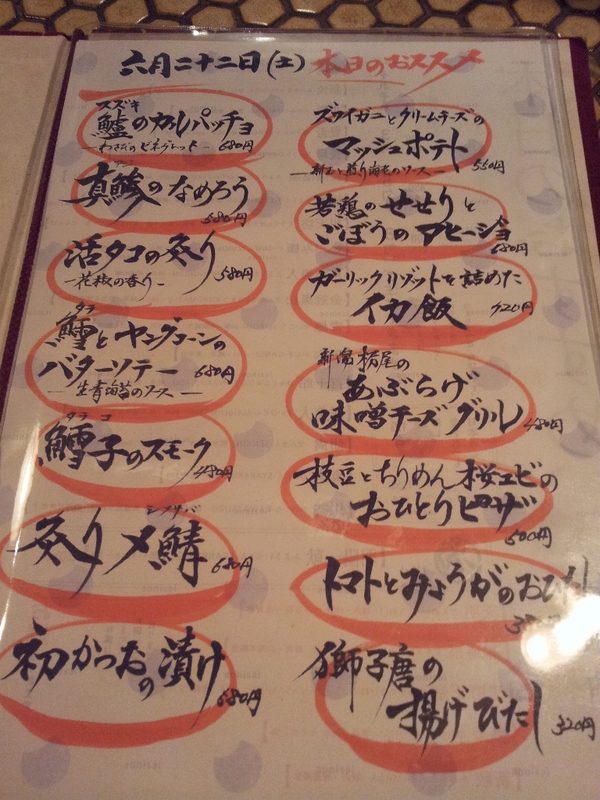 六月二十二日(土) 本日のおススメ
スズキ
鱸のカルパッチョ
―わさびのビネグレット― 680円
真鯵のなめろう
580円
活タコの炙り
―花椒の香り― 580円
タラ
鱈とヤングコーンの
バターソテー 680円
―生青海苔のソース―
タラコ
鱈子のスモーク
480円
シメサバ
炙り〆鯖 680円
初かつおの漬け
680円
ズワイガニとクリームチーズの
マッシュポテト 550円
若鶏のせせりと
ごぼうのアヒージョ
680円
ガーリックリゾットを詰めた
イカ飯 420円
新潟栃尾の
あぶらげ
味噌チーズグリル 480円
枝豆とちりめん桜エビの
おひとりピザ
500円
トマトとみょうがのおひたし
獅子唐の
揚げびたし 320円